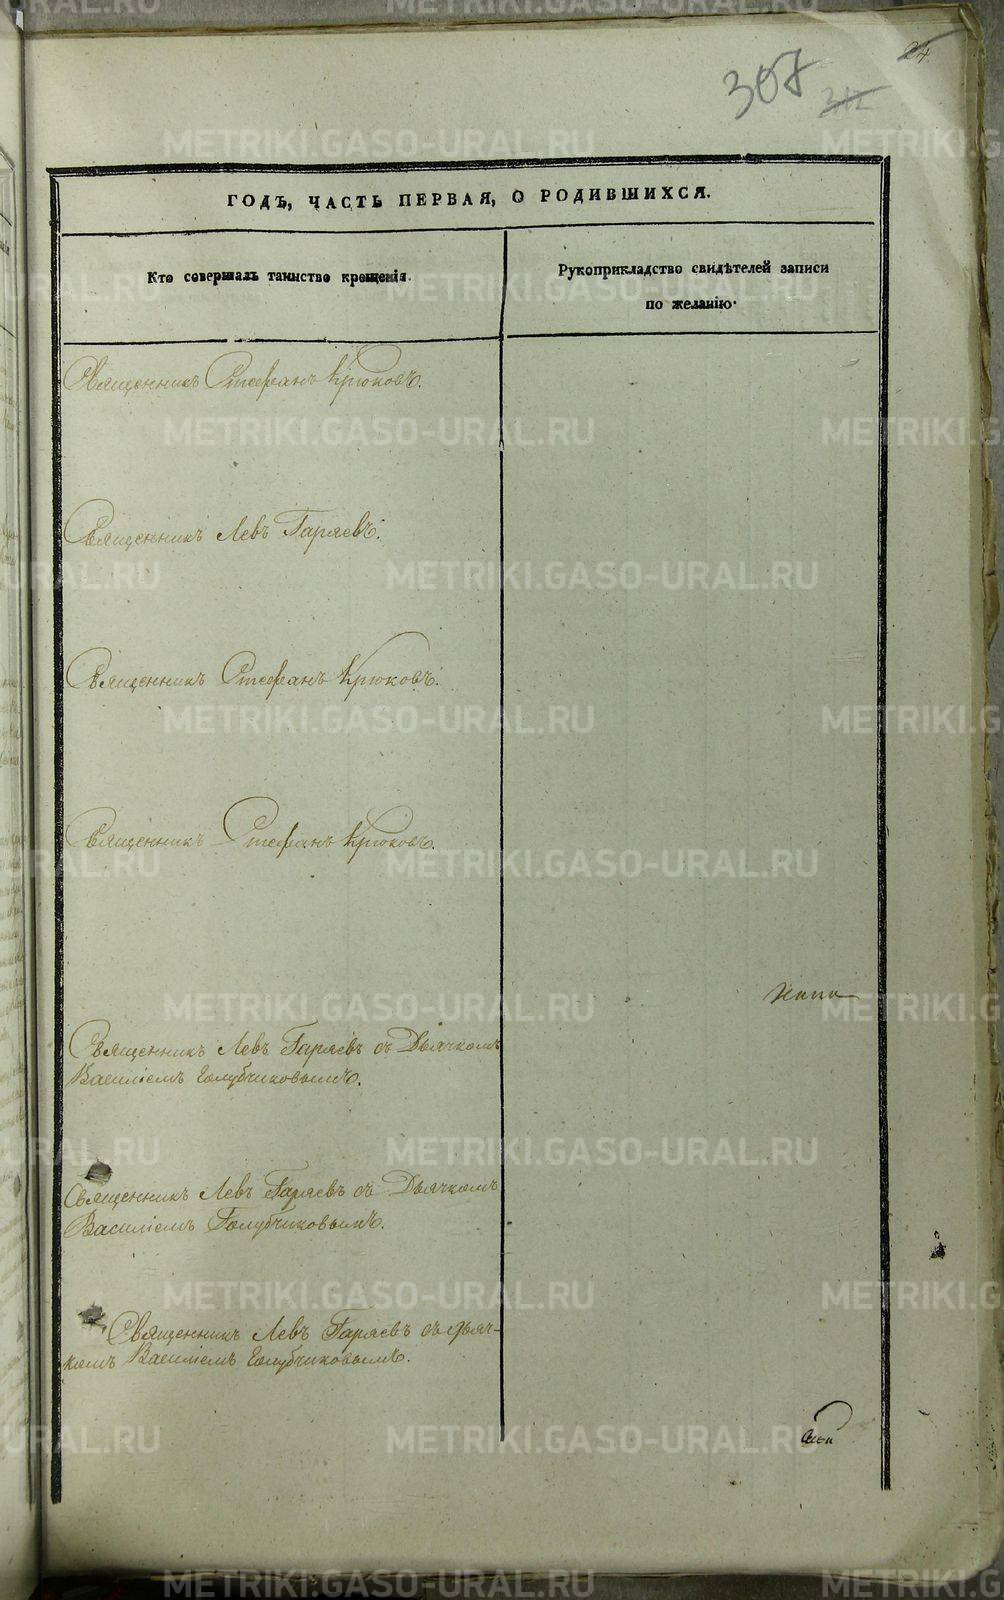 24.
307
312
ГОДЪ, ЧАСТЬ ПЕРВАЯ, О РОДИВШИХСЯ.
Кто совершалъ таинство крещенія.
Рукоприкладство свидѣтелей записи
по желанію.
Священникъ Стефанъ Крюковъ.
Священникъ Левъ Гаряевъ.
Священникъ Стефанъ Крюковъ.
Священникъ Стефанъ Крюковъ.
Священникъ Левъ Гаряевъ съ Дьячкомъ
Василіемъ Голубчиковымъ.
Священникъ Левъ Гаряевъ съ Дьячкомъ
Василіемъ Голубчиковымъ.
Священникъ Левъ Гаряевъ съ дьяч-
комъ Василіемъ Голубчиковымъ.
METRIKI.GASO-URAL.RU